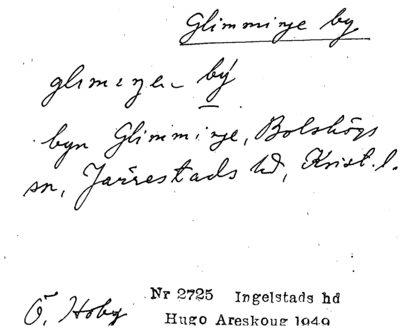 Glimminge by
glimiŋe by̍
byn Glimminge, Bolshögs
sn, Järrestads hd, Krist. l.
Ö. Hoby
Nr 2725 Ingelstads hd
Hugo Areskoug 1949